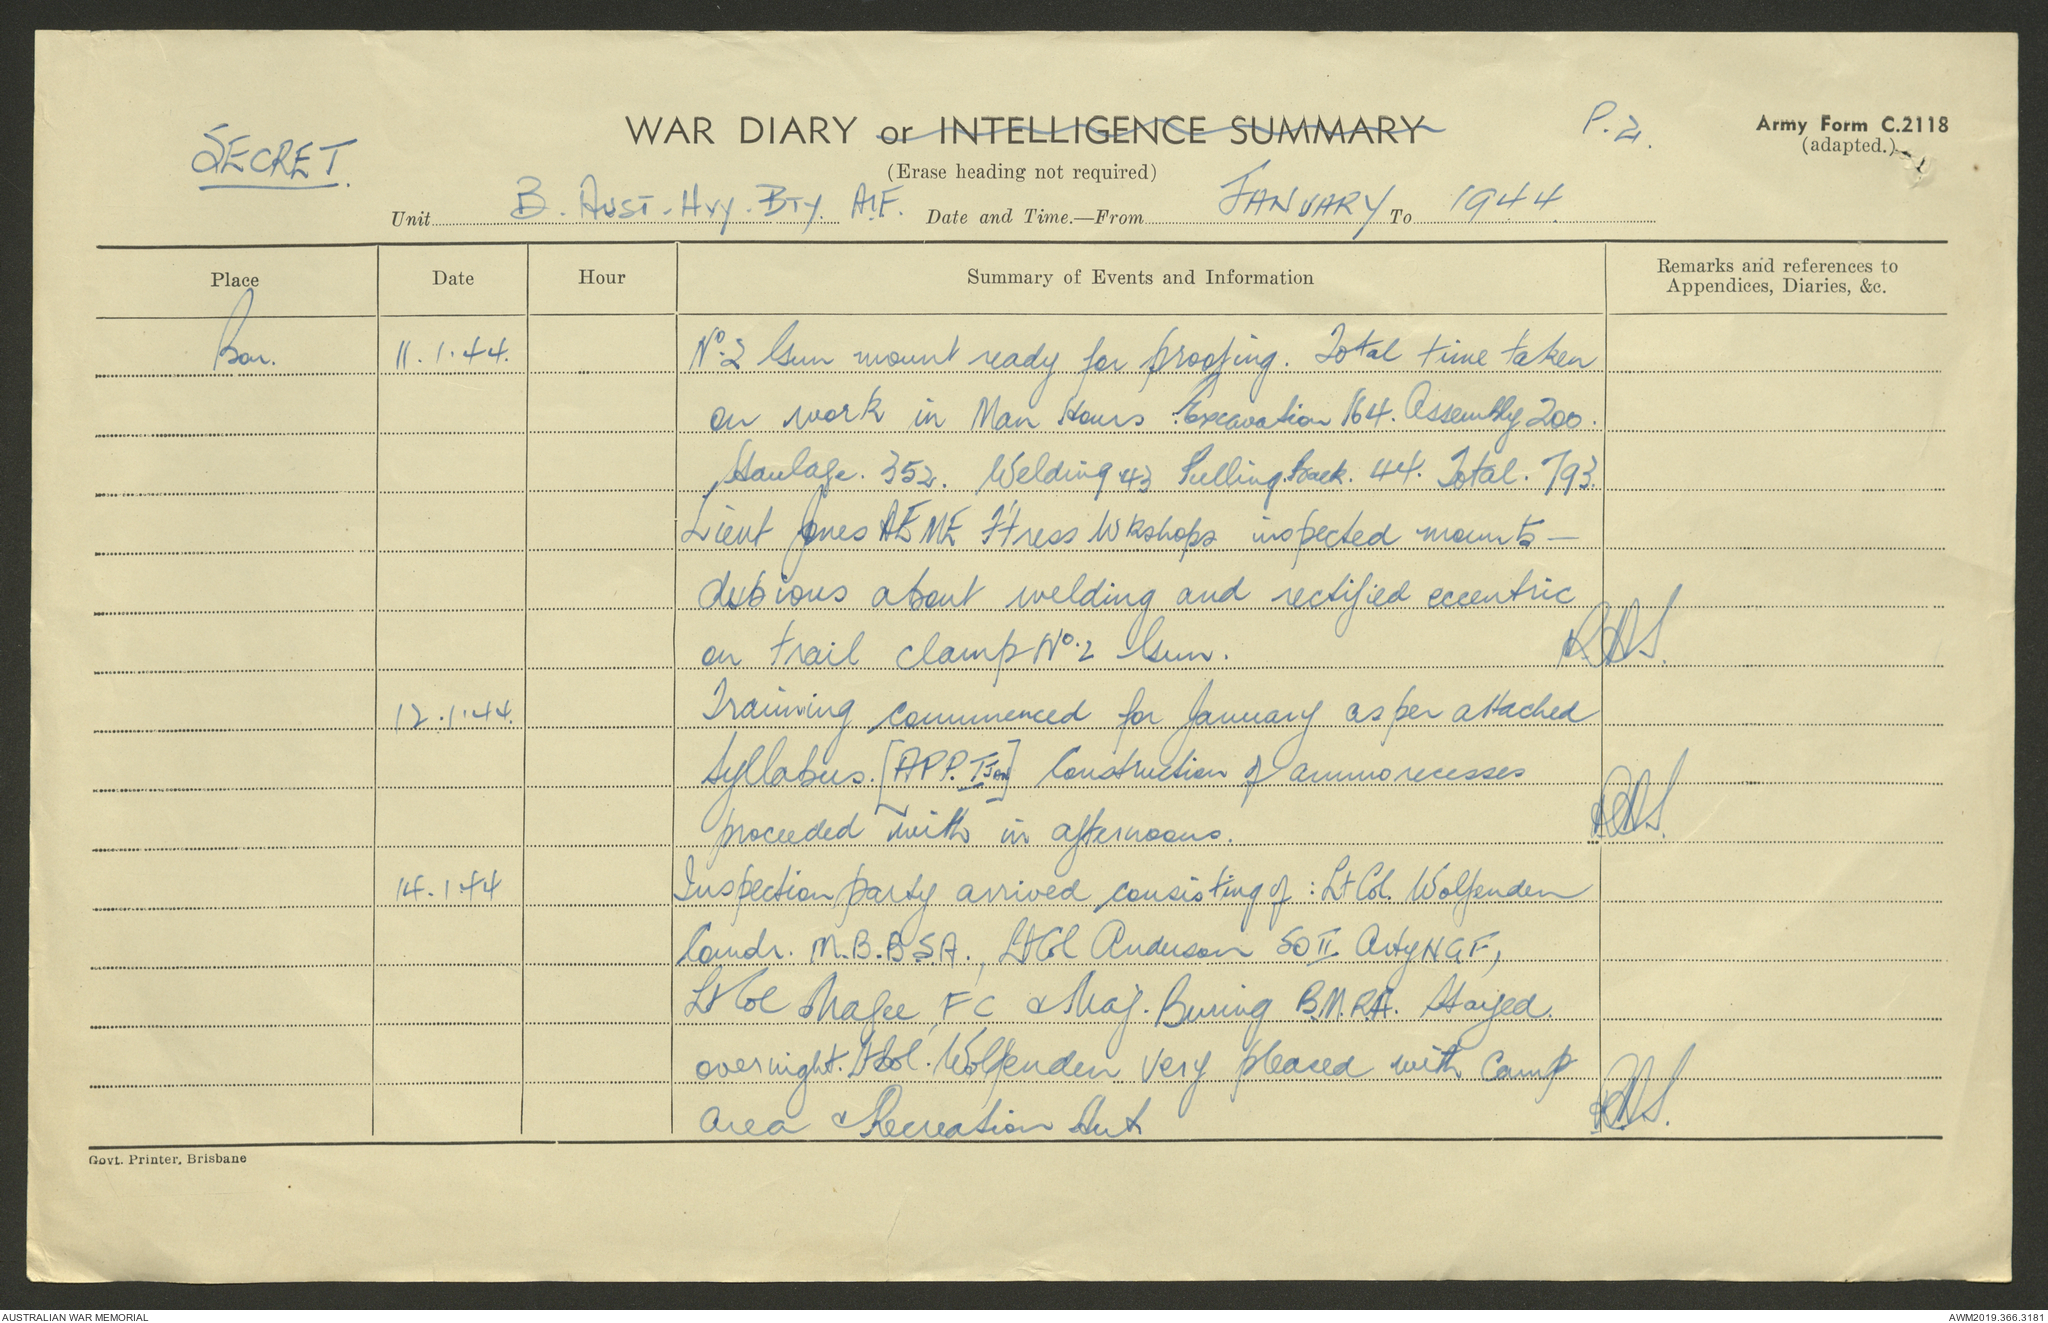 SECRET.
WAR DIARY or INTELLIGENCE SUMMARY
P.2.
Army Form C.2118
(adapted.)
(Erase heading not required)
Unit B. Aust. Hvy. Bty. AIF. Date and Time.—From JANUARY To 1944
Place Date Hour Summary of Events and Information Remarks and references to
Appendices, Diaries, &c.
11.1.44. No. 2 Gun mount ready for proofing. Total time taken
on work in Man Hours. Excavation 164. Assembly 200.
Haulage. 352. Welding 43 Pulling back. 44. Total. 793.
Lieut Jones AEME F'tress Wkshops inspected mounts —
dubious about welding and rectified eccentric
on trail clamp No. 2 Gun.
12.1.44. Training commenced for January as per attached
syllabus. [APP. I Jan] Construction of ammo recesses
proceeded with in afternoons.
14.1.44 Inspection party arrived consisting of: Lt Col. Wolfenden
Comdr. M.B.B.S.A., Lt Col Anderson SO II Arty NGF,
Lt Col Magee, FC & Maj. Buring B.M.R.A. Stayed
overnight. Lt Col. Wolfenden very pleased with camp
area & Recreation Hut
Govt. Printer, Brisbane
AUSTRALIAN WAR MEMORIAL
AWM2019.366.3181